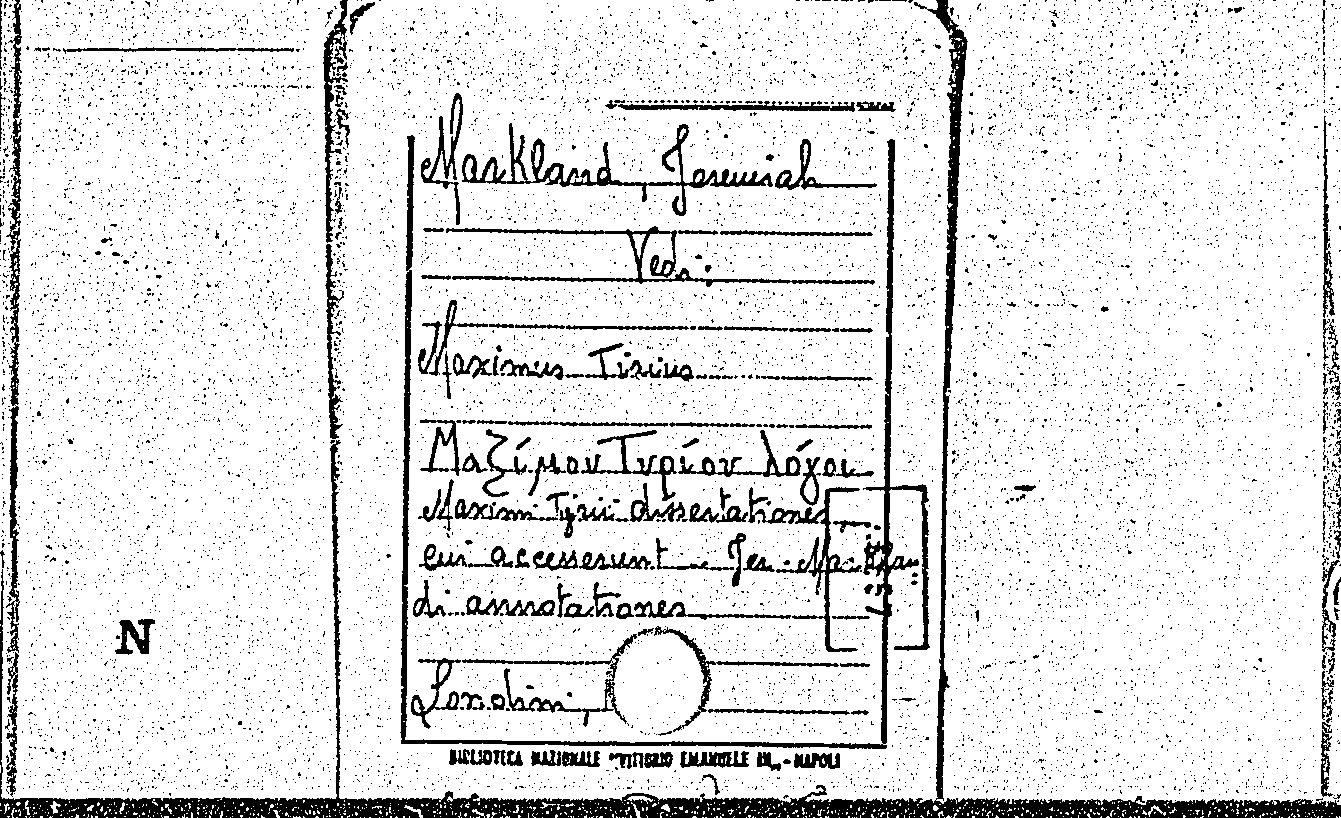 Markland, Jeremiah
Vedi:
Maximus Tirius
Μαξίμου Τυρίου λόγοι
Maximi Tyrii dissertationes
cui accesserunt .. Jer. Marklan
di annotationes
Londini,
N
BIBLIOTECA NAZIONALE "VITTORIO EMANUELE III„ - NAPOLI